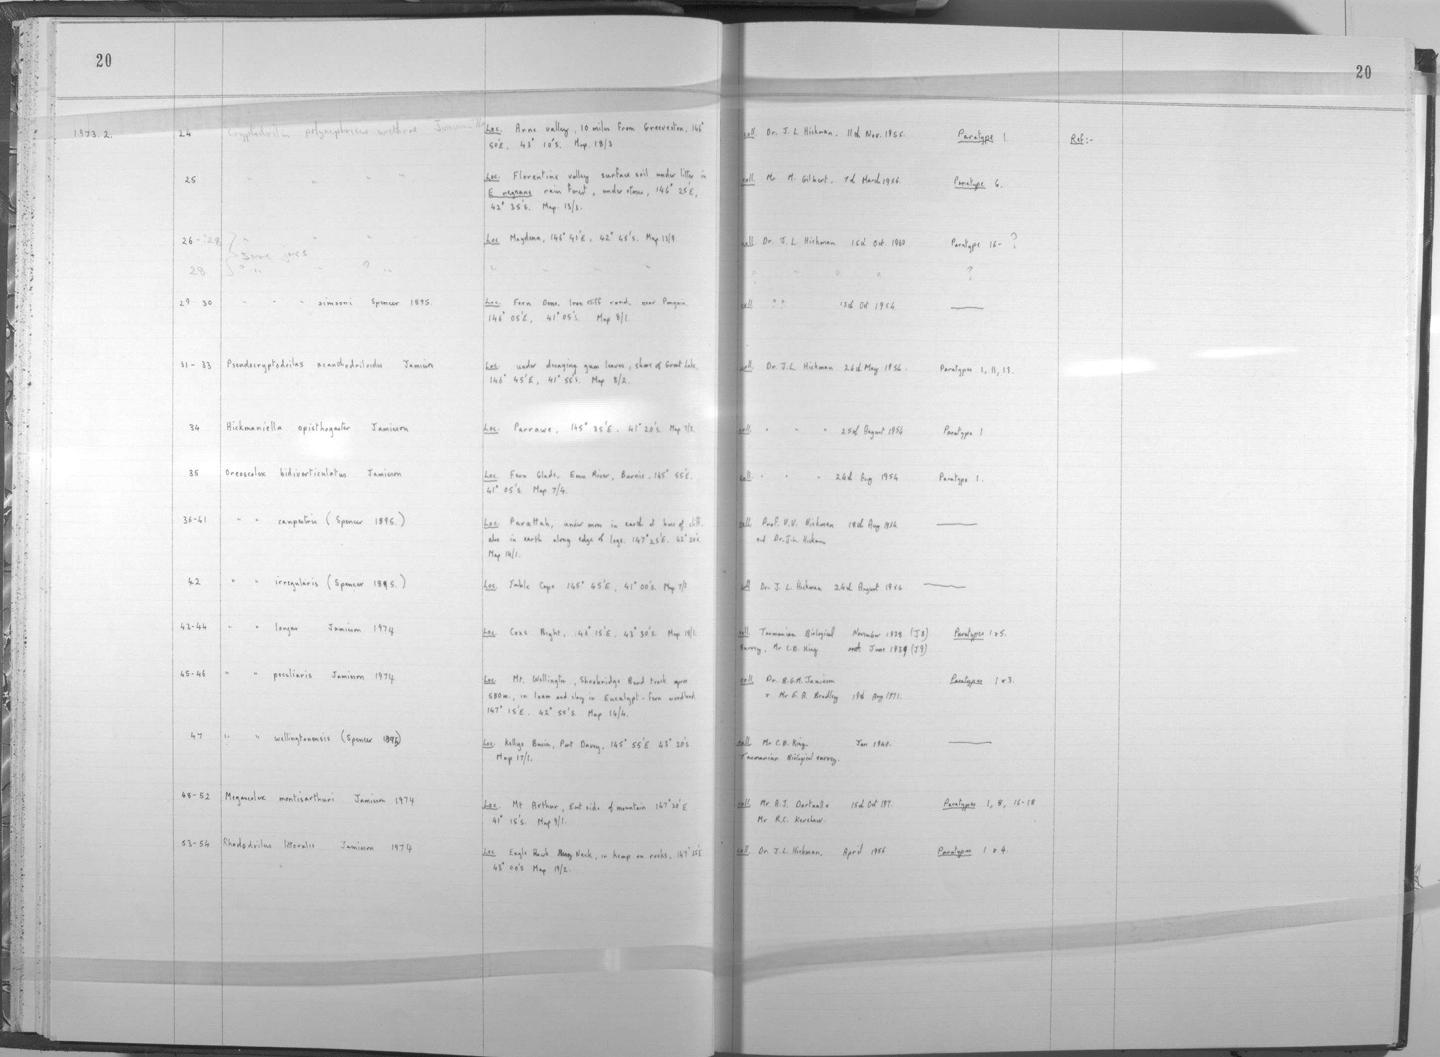 20
20
1973.2. 24 Cryptodrilus polynephricus Jamieson Loc. Arve valley, 10 miles from Geeveston, 146°
50'E, 43° 10's. Map. 18/3
coll. Dr. J. L Hickman. 11th Nov. 1955. Paratype 1. Ref:-
25 " " " " Loc. Florentine valley surface soil under litter in
E regnans rain forest, under stones, 146° 25'E,
42° 35's. Map. 13/3.
coll. Mr M. Gilbert. 7th March 1956. Paratype 6.
26-28 Loc Maydena, 146° 41'E, 42° 45's. Map 13/9
coll. Dr. J. L Hickman 15th Oct. 1960 Paratype 16- ?
28 ? " " ? " " " " " ?
29 30 " " " simsoni Spencer 1895. Loc. Fern Dene, Iron cliff road, near Penguin.
146° 05'E, 41° 05's. Map 8/1.
coll " " 13th Oct 1954
31-33 Pseudocryptodrilus acanthodriloides Jamieson Loc under decaying gum leaves, shore of Great Lake.
146° 45'E, 41° 55's. Map 8/2.
coll. Dr. J.L. Hickman 26th May 1954. Paratypes 1, 11, 13.
34 Hickmaniella opisthogaster Jamieson Loc. Parrawe, 145° 35'E. 41° 20's. Map 7/3.
coll. " " " 25th August 1954 Paratype 1
35 Oreoscolex bidiverticulatus Jamieson Loc. Fern Glade, Emu River, Burnie, 145° 55'E.
41° 05's. Map 7/4.
coll. " " " 24th Aug 1954 Paratype 1.
36-41 " " campestris (Spencer 1895.) Loc. Parattah, under moss in earth at base of cliff.
also in earth along edge of logs. 147° 25'E. 42° 20's.
Map 14/1.
coll. Prof. V.V. Hickman 18th Aug 1954
and Dr. J.L. Hickman
42 " " irregularis (Spencer 1895.) Loc. Table Cape 145° 45'E, 41° 00's. Map 7/2
coll Dr. J. L. Hickman 24th August 1954
43-44 " " longus Jamieson 1974 Loc. Coxs Bight, 146° 15'E, 43° 30's. Map 18/1.
coll. Tasmanian Biological November 1938 (J8)
survey, Mr C.D. King June 1939 (J9) Paratypes 1 & 5.
45-46 " " peculiaris Jamieson 1974 Loc. Mt. Wellington, Shoobridge Bend track approx
580m., in loam and clay in Eucalypt-fern woodland
147° 15'E. 42° 55's. Map 14/4.
coll. Dr. B.G.M. Jamieson
& Mr E. A. Bradley 19th Aug 1971. Paratypes 1 & 3.
47 " " wellingtonensis (Spencer 1895) Loc. Kellys Basin, Port Davey, 145° 55'E 43° 20's
Map 17/1.
coll. Mr C.D. King. Jan 1940.
Tasmanian Biological survey.
48-52 Megascolex montisarthuri Jamieson 1974 Loc. Mt Arthur, East side of mountain 147° 20'E
41° 15's. Map 9/1.
coll. Mr A.J. Dartnall & 15th Oct 197.
Mr R.C. Kershaw. Paratypes 1, 8, 16-18
53-54 Rhododrilus littoralis Jamieson 1974 Loc Eagle Hawk Neck, in hemp on rocks, 147° 55'E
43° 00's Map 19/2.
coll. Dr. J.L. Hickman. April 1955 Paratypes 1 & 4.